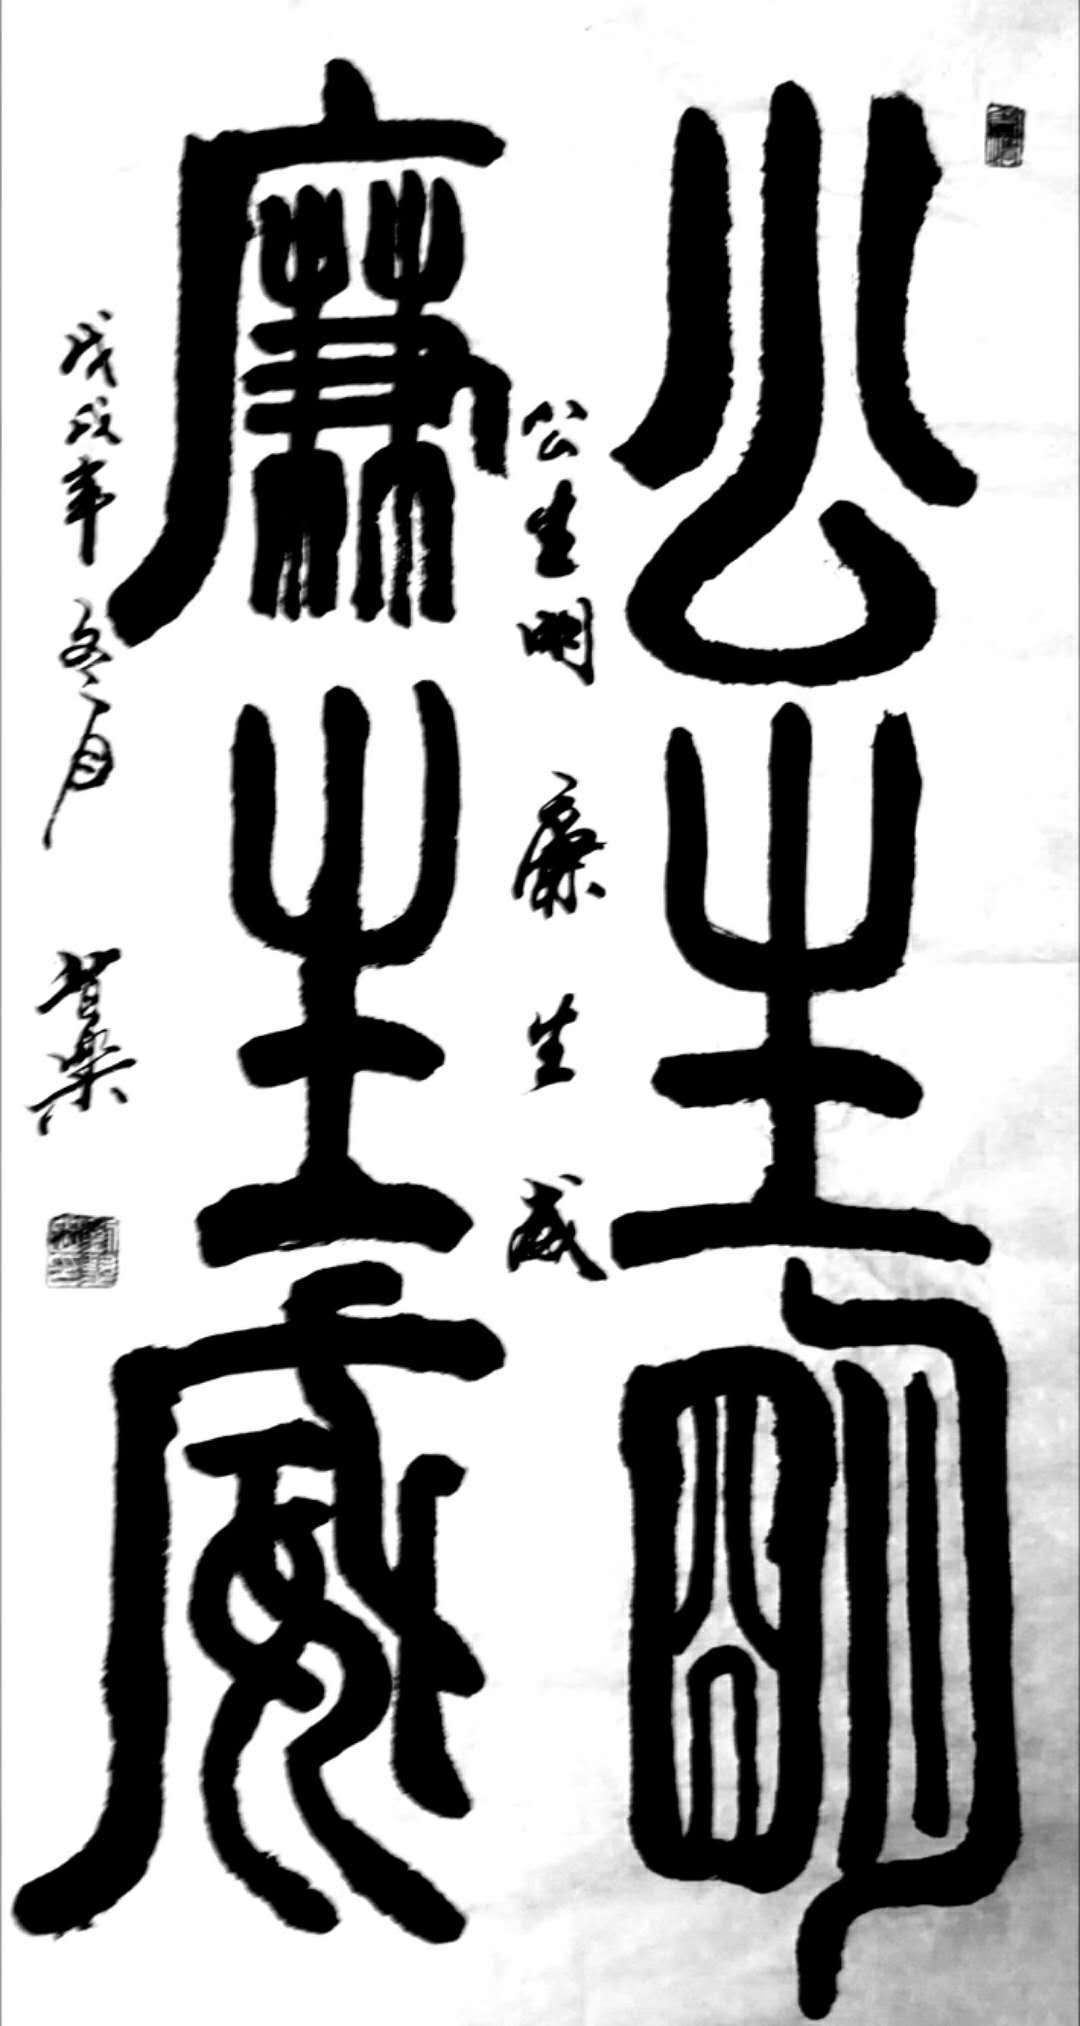 公生明
廉生威
公生明 廉生威
戊戌年冬月